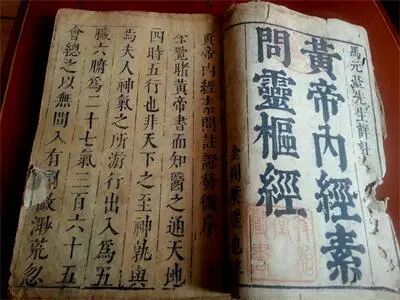 馬元臺先生詳註
黃帝內經素
問靈樞經
黃帝內經素問註證發微序
覽睹黃帝書而知醫之通天地
四時五行也非天下之至神孰與
焉夫人神氣之所游行出入為五
臟六腑為二十七氣三百六十五
會總之以無間入有間故荒忽